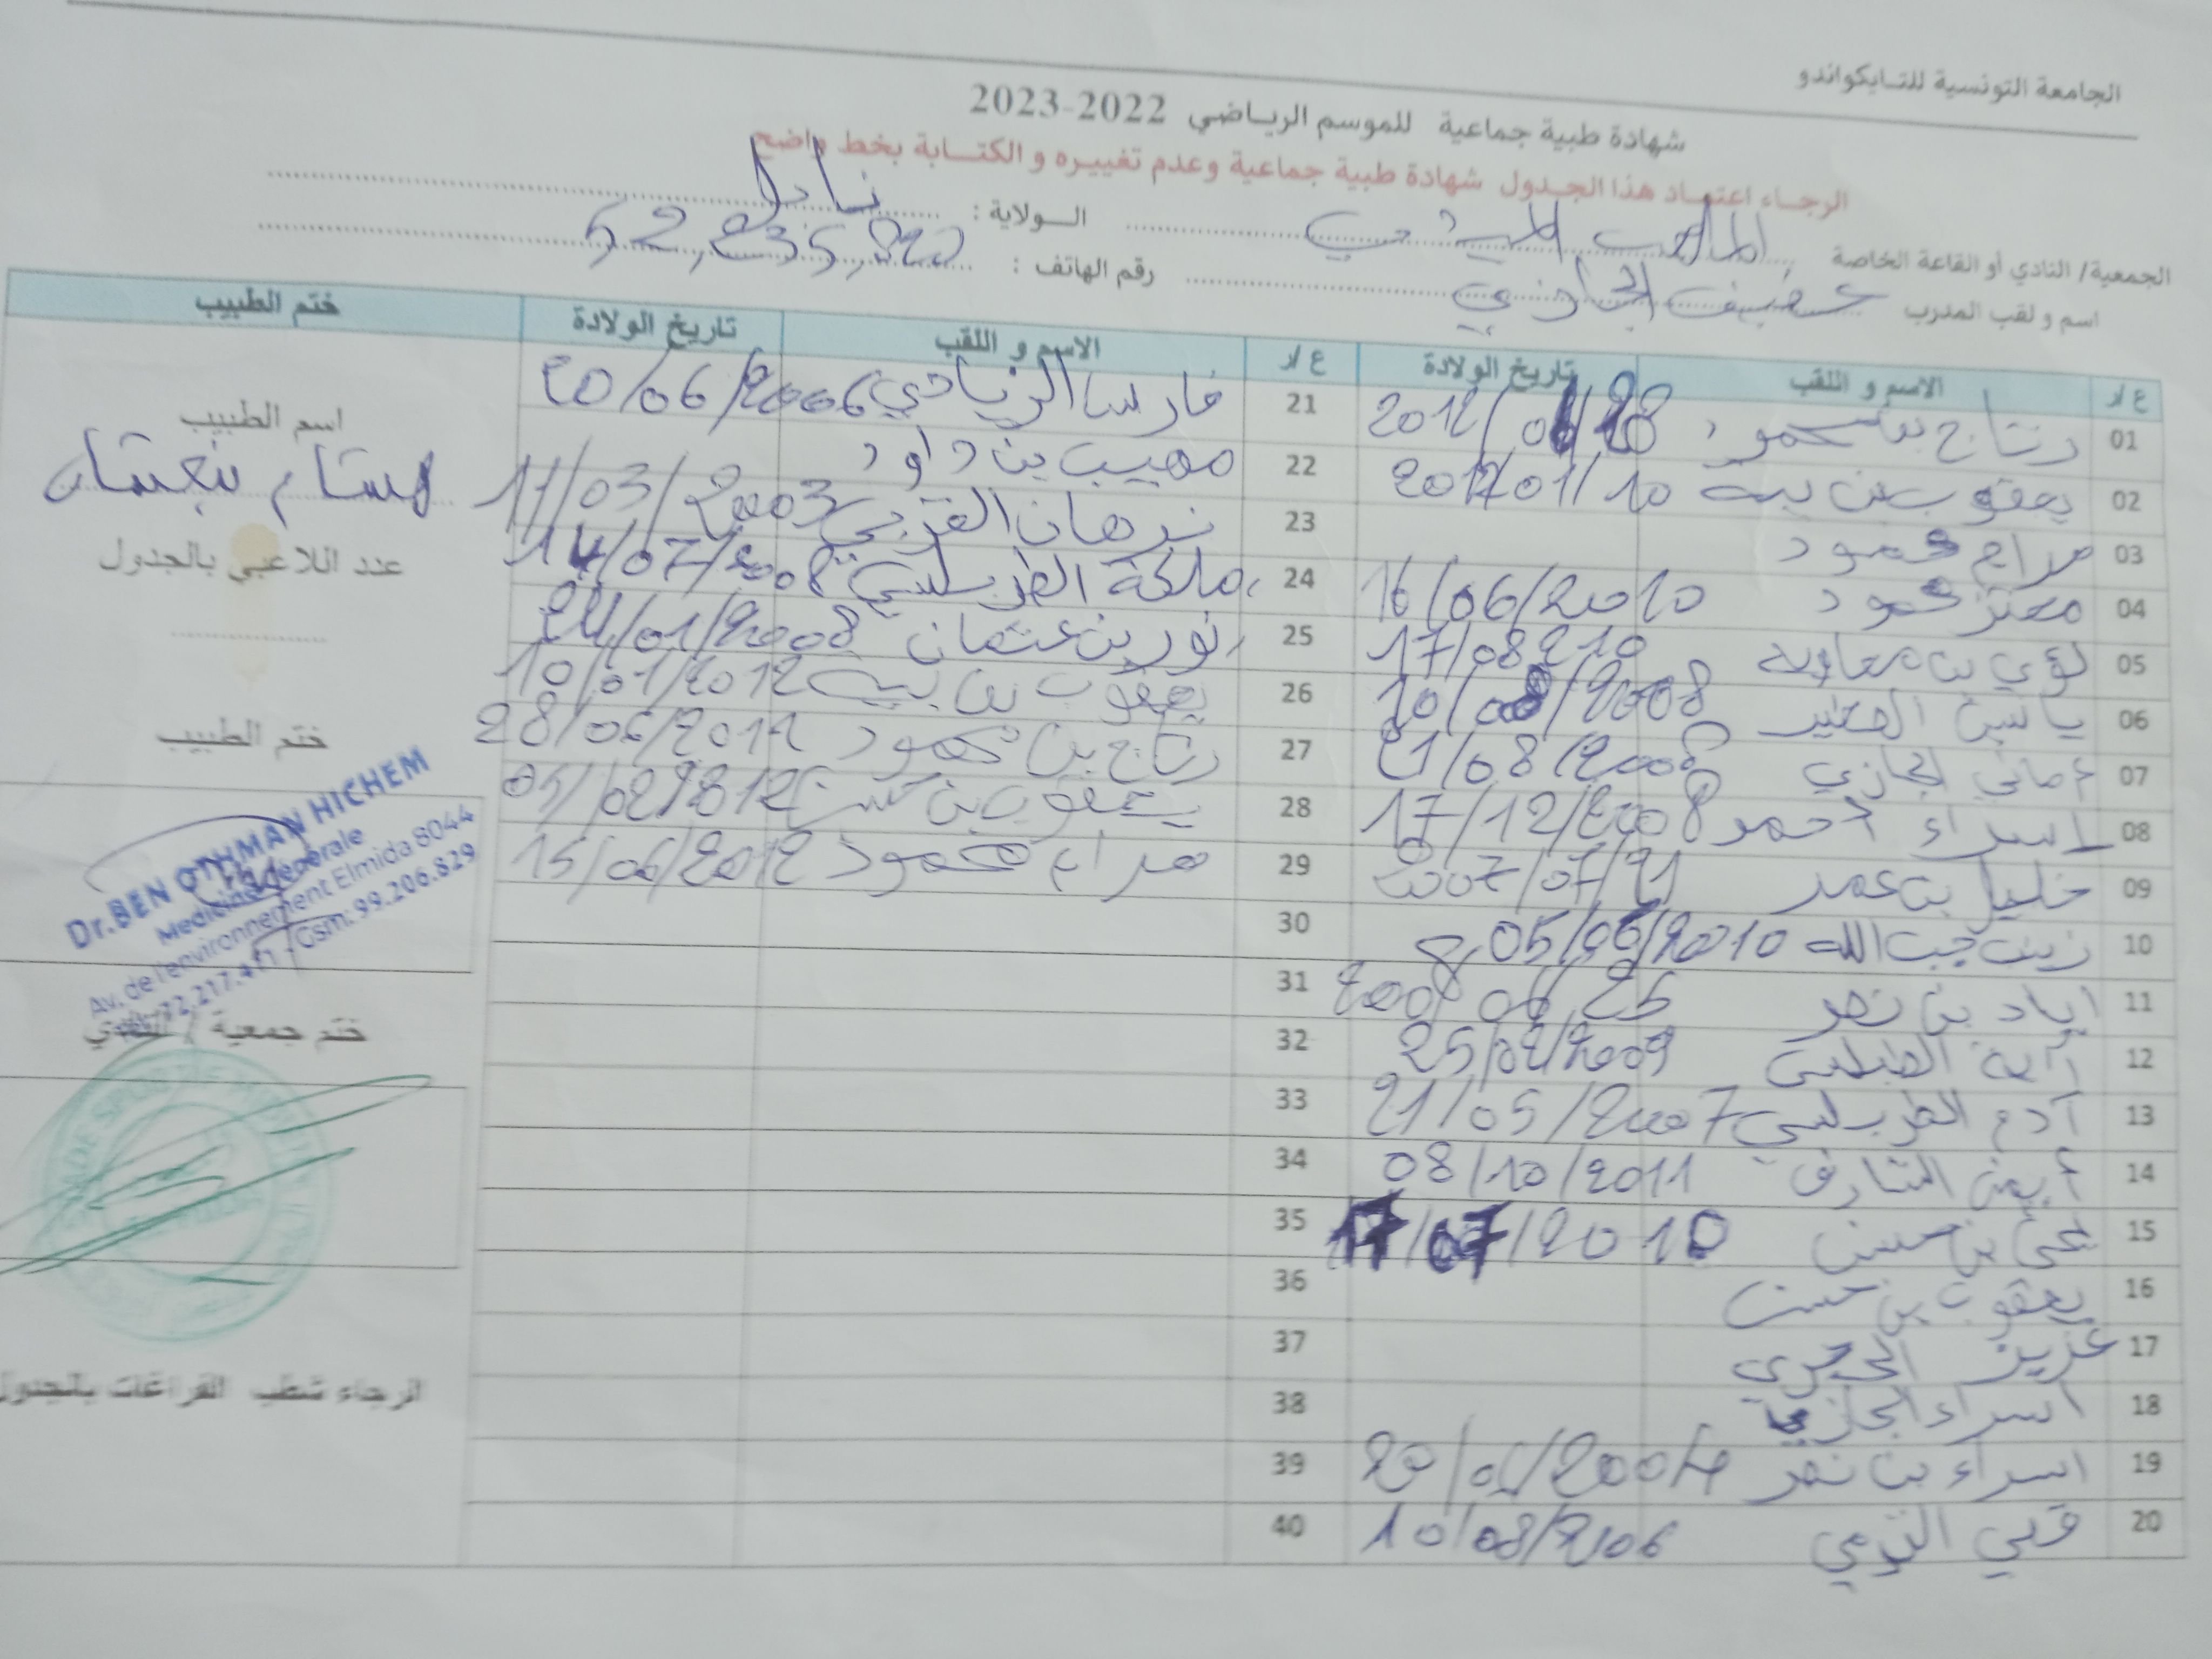 الجامعة التونسية للتايكواندو
شهادة طبية جماعية للموسم الرياضي 2022-2023
الرجاء اعتماد هذا الجدول شهادة طبية جماعية وعدم تغييره و الكتابة بخط واضح
الجمعية/ النادي أو القاعة الخاصة الملعب الميدي الولاية : نابل
اسم و لقب المدرب عفيف الجازي رقم الهاتف : 52,235,820
ع/ر الاسم و اللقب تاريخ الولادة ع/ر الاسم و اللقب تاريخ الولادة ختم الطبيب
01 رتاج بن محمود 2012/06/28
02 يعقوب بن بية 2012/01/10
03 مرام محمود
04 معتز محمود 16/06/2010
05 لؤي بن معاوية 17/08/210
06 ياسين 10/08/2008
07 أماني الجازي 21/08/2008
08 إسراء أحمد 17/12/2008
09 خليل بن عمر 2007/07/21
10 زينب جب الله 05/06/2010
11 إياد بن نصر 2008/06/25
12 آية 25/02/2009
13 آدم الطرابلسي 21/05/2007
14 أيمن الشارف 08/10/2011
15 يحيى بن حسين 17/07/2010
16 يعقوب بن حسن
17 عزيز
18 اسراء الجازي
19 اسراء بن نصر 20/01/2004
20 10/08/2006
21 فارس الزيادي 20/06/2006
22 مهيب بن داود
23 نرهان القزبي 11/03/2003
24 ملكة الطرابلسي 14/07/2008
25 نور بن عثمان 24/01/2008
26 يعقوب بن بية 10/01/2012
27 رتاج بن محمود 28/06/2012
28 يعقوب بن حسن
29 مرام محمود 15/06/2012
30
31
32
33
34
35
36
37
38
39
40
اسم الطبيب
هشام بنعثمان
عدد اللاعبي بالجدول
ختم الطبيب
Dr.BEN OTHMAN HICHEM
Medicine Génerale
Av. de l'environnement Elmida 8044
72.217.411 - Gsm: 99.206.829
ختم جمعية / النادي
الرجاء شطب الفراغات بالجدول